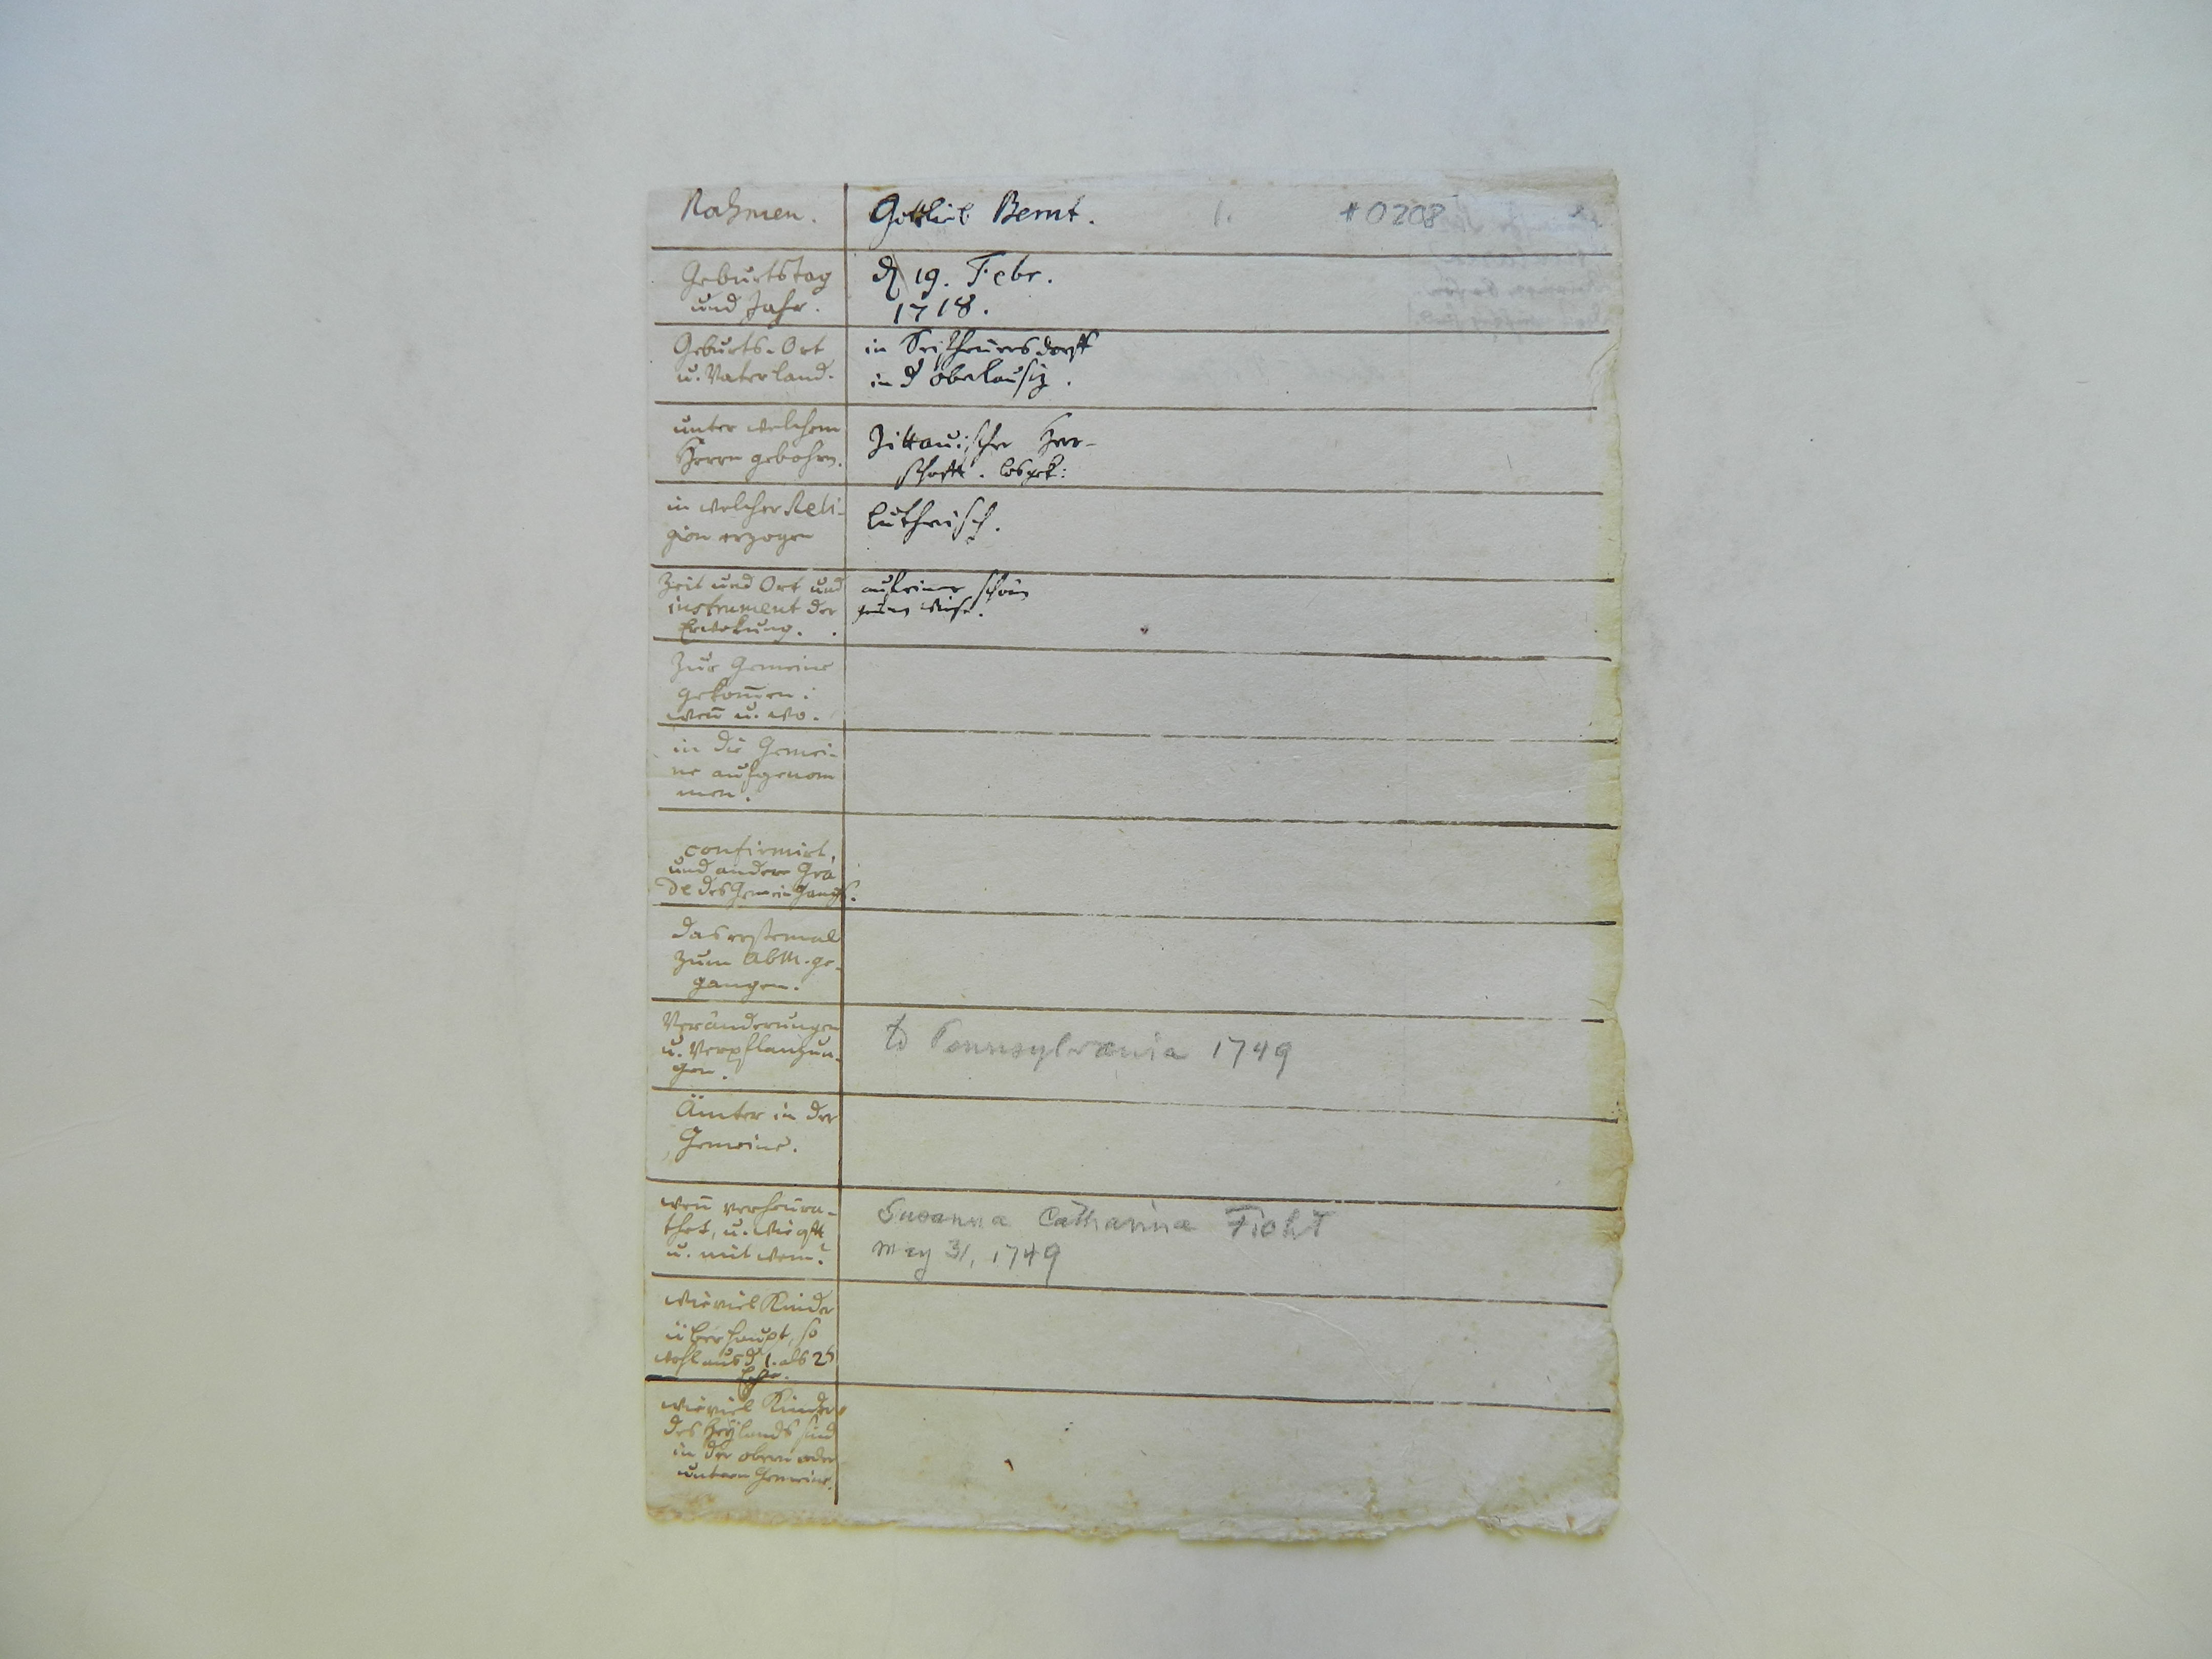 Nahmen. Gottlieb Bernt. 1. #0208
Geburtstag
und Jahr.
d 19. Febr.
1718.
Geburts-Ort
u. Vaterland.
in Seifhennersdorff
in d oberlausiz.
unter welchem
Herrn gebohrn.
Zittauische Herr-
schafft. losgek:
in welcher Reli-
gion erzogen
Luthrisch.
Zeit und Ort und
instrument der
Erwekung.
auf eine schön
Weise.
Zur Gemeine
gekom̄en:
wen̄ u. wo.
in die Gemei-
ne aufgenom
men.
confirmirt,
und andere Gra
de des Gemeingangs.
das erstemal
zum Abm. ge-
gangen.
Veränderungen
u. Verpflanzun-
gen.
to Pennsylvania 1749
Ämter in der
Gemeine.
wen̄ verheura-
thet, u.
u. mit wem?
Susanna Catharina Ficht
May 31, 1749
wieviel Kinder
überhaupt, so
wohl aus d 1. als 2t
Ehe.
wieviel Kinder
des Heylands sind
in der obern oder
untern Gemeine.